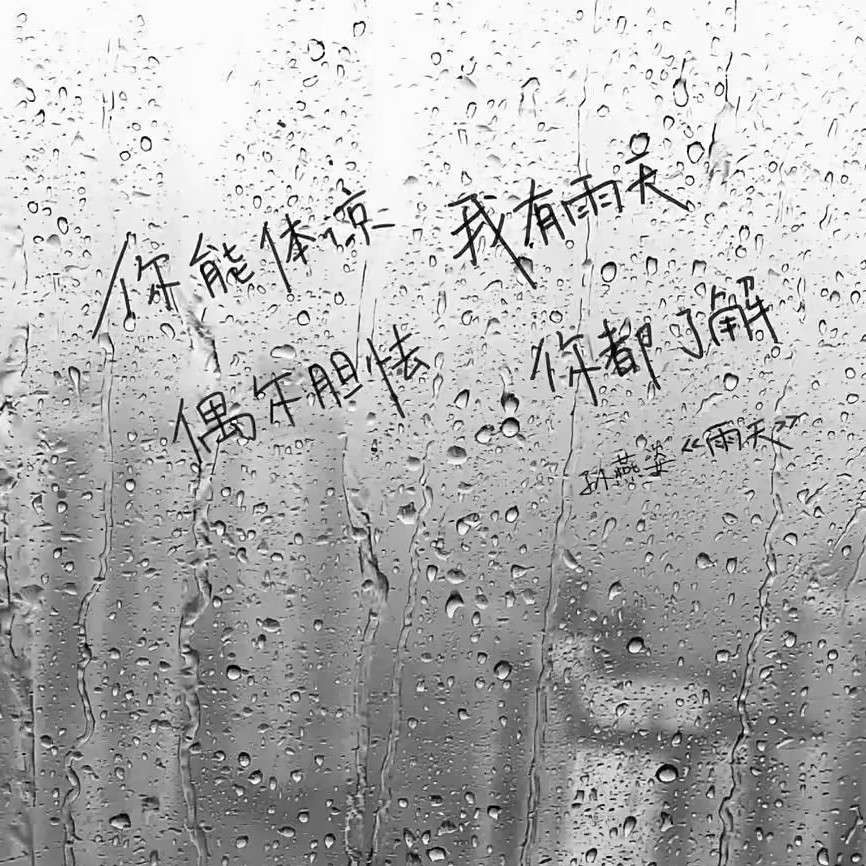 你能体谅 我有雨天
偶尔胆怯 你都了解
孙燕姿《雨天》